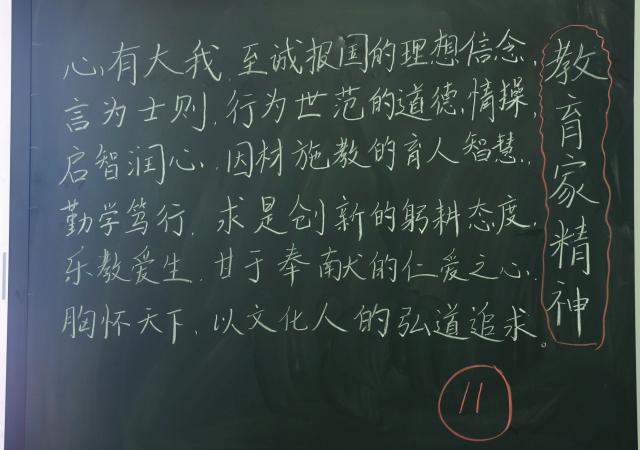 心有大我、至诚报国的理想信念，
言为士则、行为世范的道德情操，
启智润心、因材施教的育人智慧，
勤学笃行、求是创新的躬耕态度，
乐教爱生、甘于奉献的仁爱之心，
胸怀天下、以文化人的弘道追求。
教育家精神
11